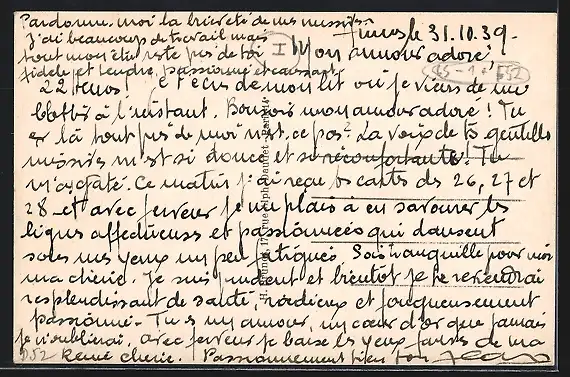 Pardonne-moi la brièveté de mes missives
J'ai beaucoup de travail mais
tout mon être reste près de toi
fidèle et tendre, passionné et caressant
le 31.10.39.
I
Mon amour adoré,
22 heures
Je t'écris de mon lit où je viens de me
blottir à l'instant. Bonsoir mon amour adoré ! Tu
es là tout près de moi n'est-ce pas ? La voix de tes gentilles
missives m'est si douce et si réconfortante ! Tu
m'as gâté. Ce matin j'ai reçu tes cartes des 26, 27 et
28 et avec ferveur je me plais à en savourer les
lignes affectueuses et passionnées qui dansent
sous mes yeux un peu fatigués. Sois tranquille pour moi
ma chérie. Je suis prudent et bientôt je te reviendrai
resplendissant de santé, radieux et fougueusement
passionné. Tu es mon amour, un cœur d'or que jamais
je n'oublierai. Avec ferveur je baise les yeux de ma
952 Renée chérie. Passionnément bien ton Jean